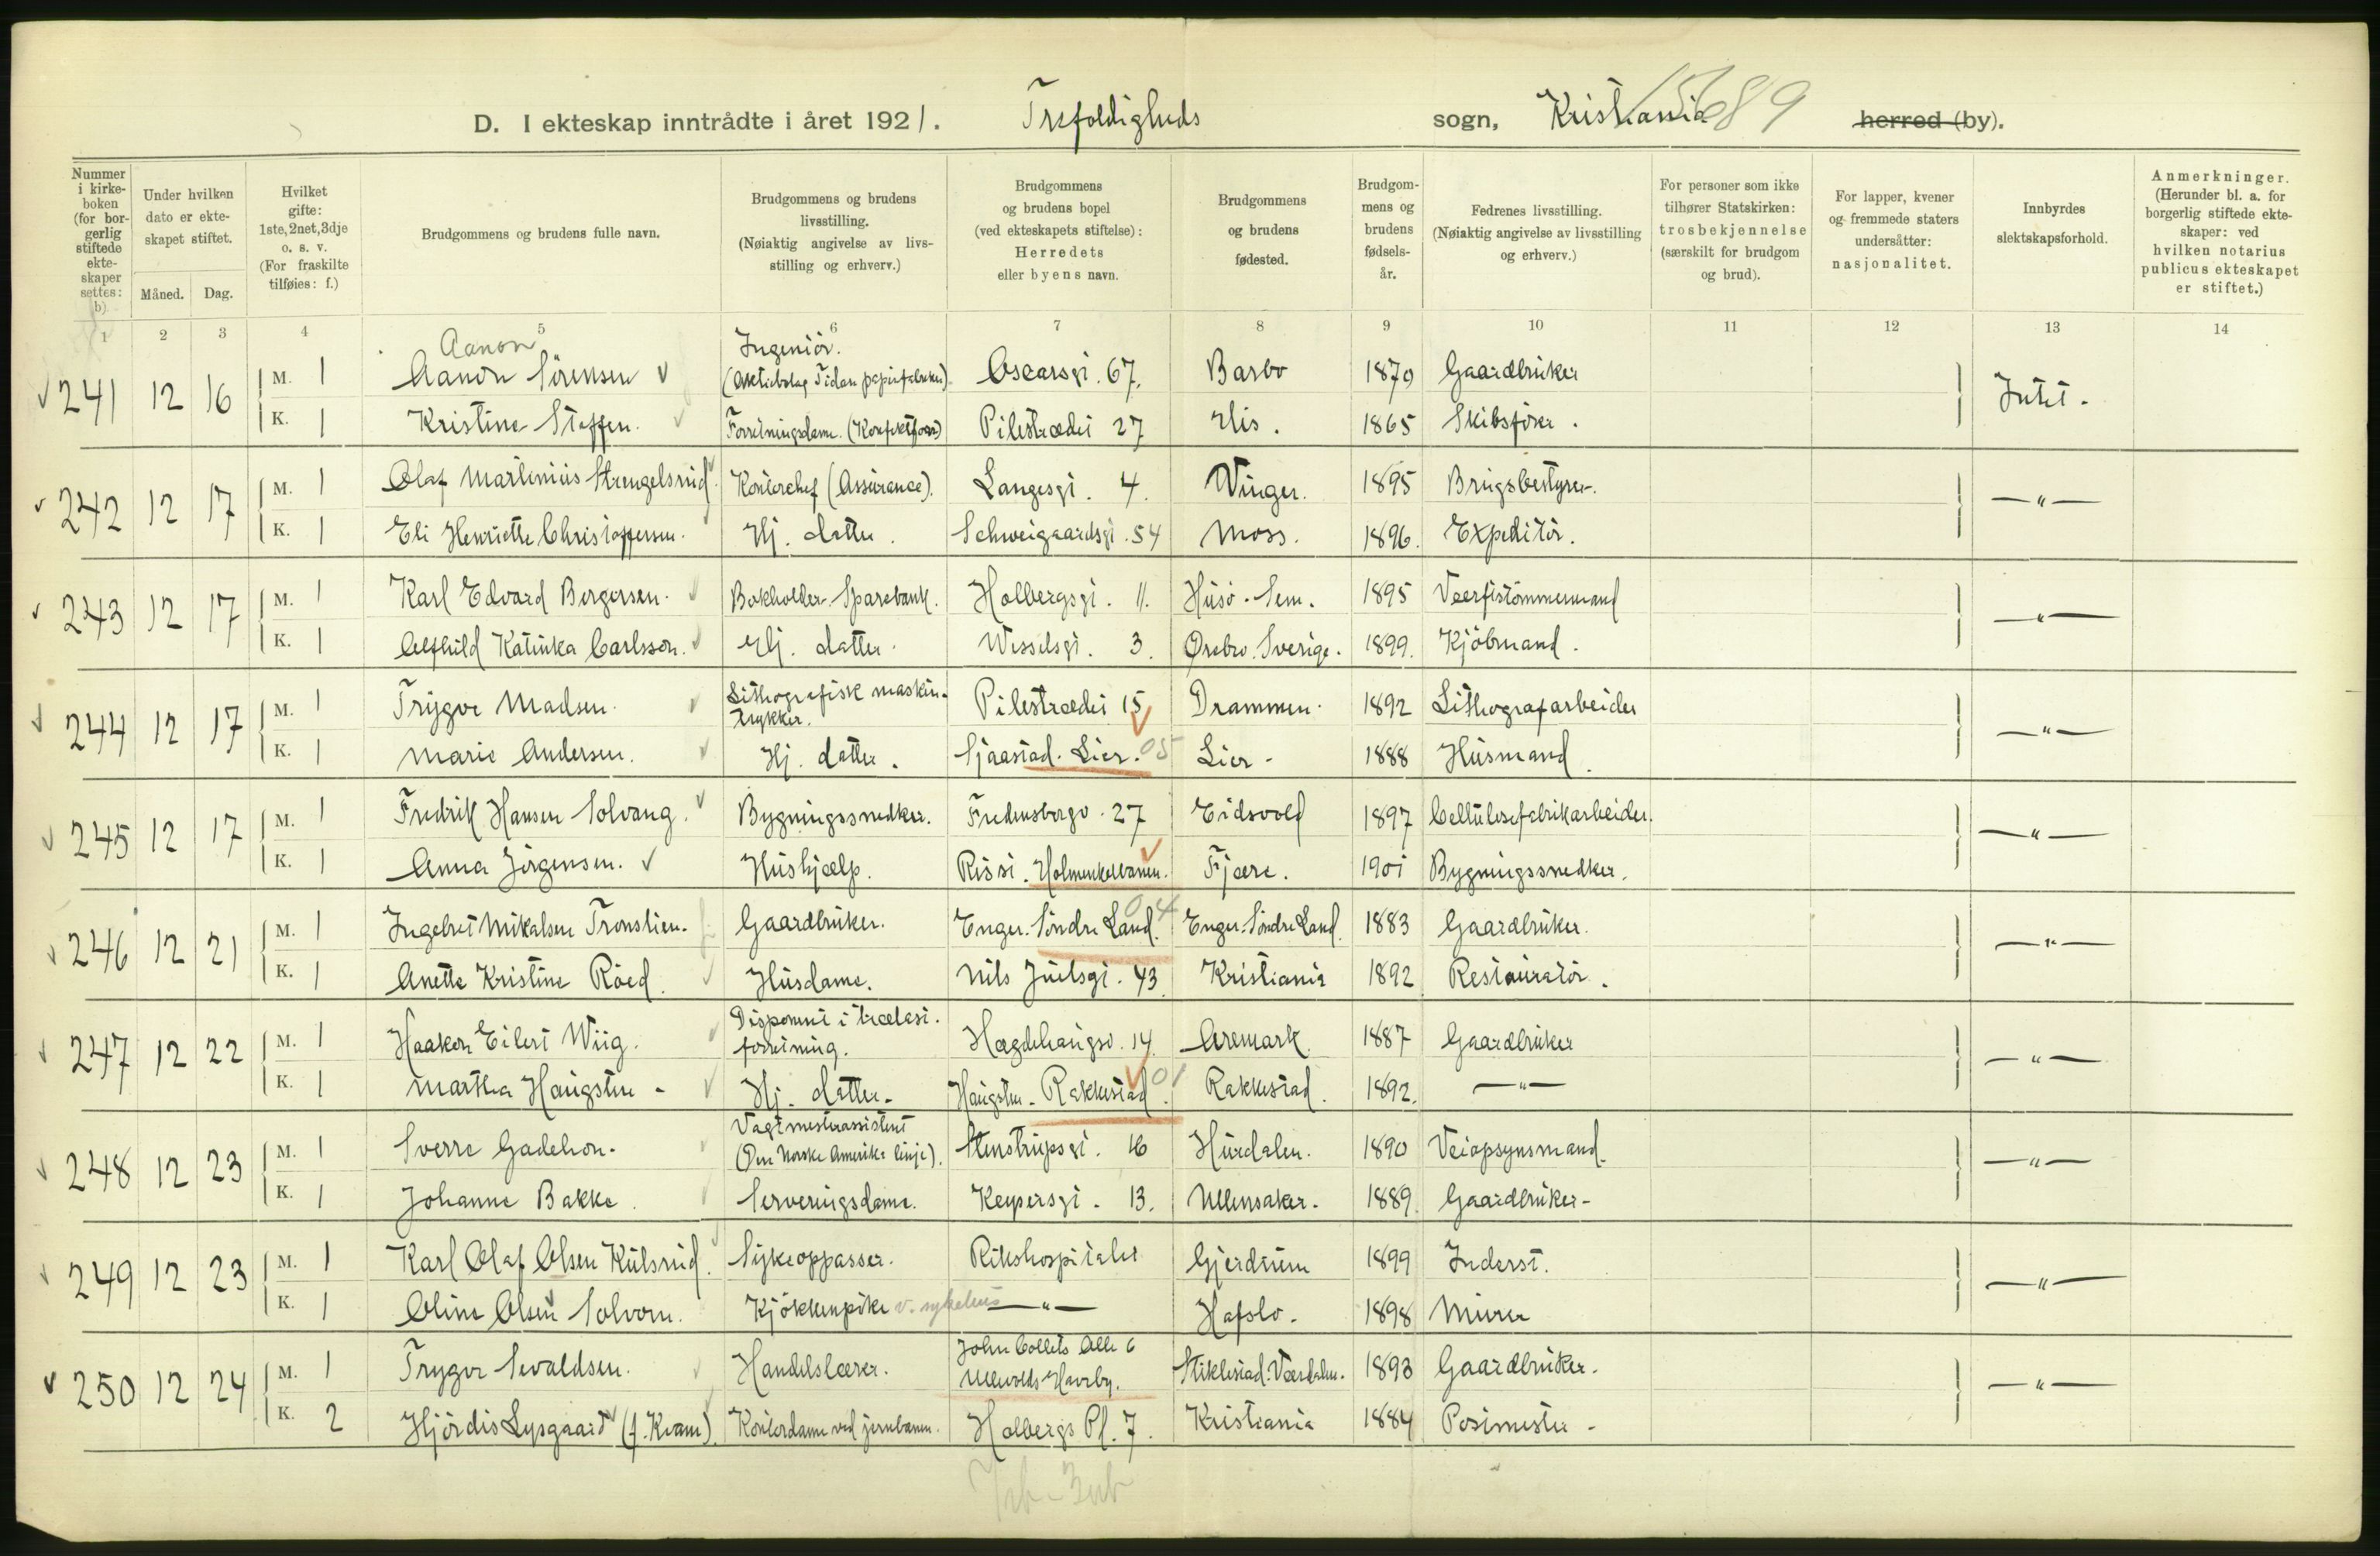 D. I ekteskap inntrådte i året 1921. Trefoldigheds sogn, Kristiania herred (by).
15689
Nummer i kirke-boken (for bor-gerlig stiftede ekte-skaper settes: b)
Under hvilken dato er ekte-skapet stiftet.
Måned. Dag.
Hvilket gifte: 1ste, 2net, 3dje o. s. v. (For fraskilte tilføies: f.)
Brudgommens og brudens fulle navn.
Brudgommens og brudens livsstilling. (Nøiaktig angivelse av livs-stilling og erhverv.)
Brudgommens og brudens bopel (ved ekteskapets stiftelse): Herredets eller byens navn.
Brudgommens og brudens fødested.
Brudgom-mens og brudens fødsels-år.
Fedrenes livsstilling. (Nøiaktig angivelse av livsstilling og erhverv.)
For personer som ikke tilhører Statskirken: trosbekjennelse (særskilt for brudgom og brud).
For lapper, kvener og fremmede staters undersåtter: nasjonalitet.
Innbyrdes slektskapsforhold.
Anmerkninger. (Herunder bl. a. for borgerlig stiftede ekte-skaper: ved hvilken notarius publicus ekteskapet er stiftet.)
1 2 3 4 5 6 7 8 9 10 11 12 13 14
Aanon
Ingeniör.
241 12 16 M. 1 Aanon Sörensen (Aktiebolag Tidan papirfabriker) Oscarsgt. 67. Barbo 1870 Gaardbruker Intet.
K. 1 Kristine Steffen. Forretningsdame. (Konfektion) Pilestrædet 27 His. 1865 Skibsförer.
242 12 17 M. 1 Olaf Martinius Strengelsrud Kontorchef (Assurance). Langesgt. 4. Vinger. 1895 Brugsbestyrer. — " —
K. 1 Eli Henriette Christoffersen. Hj. datter. Schweigaardsgt. 54 Moss. 1896. Expeditör.
243 12 17 M. 1 Karl Edvard Bergersen. Bokholder. Sparebank. Holbergsgt. 11. Husö. Sem. 1895 Værftstömmermand — " —
K. 1 Alfhild Katinka Carlsson. Hj. datter. Wesselsgt. 3. Ørebro. Sverige. 1899. Kjöbmand.
244 12 17 M. 1 Trygve Madsen. Lithografisk maskin-trykker. Pilestrædet 15 Drammen. 1892 Lithografarbeider — " —
K. 1 Marie Andersen. Hj. datter. Sjaastad. Lier. 05 Lier. 1888 Husmand.
245 12 17 M. 1 Fredrik Hansen Solvang. Bygningssnedker. Fredensborgv. 27 Eidsvold 1897 Cellulosefabrikarbeider. — " —
K. 1 Anna Jörgensen. Hushjælp. Rissi. Holmenkolbanen. Fjære. 1901 Bygningssnedker.
246 12 21 M. 1 Ingebret Mikalsen Tronslien. Gaardbruker. Enger. Söndre Land. 04 Enger. Söndre Land. 1883 Gaardbruker. — " —
K. 1 Anette Kristine Röed. Husdame. Nils Juelsgt. 43. Kristiania 1892 Restauratör.
247 12 22 M. 1 Haakon Eilert Wiig. Disponent i trælast-forretning. Hægdehaugsv. 14. Aremark. 1887 Gaardbruker — " —
K. 1 Martha Haugsten. Hj. datter. Haugsten. Rakkestad. 01 Rakkestad. 1892. — " —
248 12 23 M. 1 Sverre Gadehon. Vagtmesterassistent (Den Norske Amerika linje). Stenstrupsgt. 16 Hurdalen. 1890 Veiopsynsmand. — " —
K. 1 Johanne Bakke. Serveringsdame. Keysersgt. 13. Ullensaker. 1889. Gaardbruker.
249 12 23 M. 1 Karl Olaf Olsen Kulsrud. Sykeoppasser. Rikshospitalet Gjerdrum 1899 Inderst. — " —
K. 1 Oline Olsen Solvorn. Kjökkenpike v. sykehus — " — Hafslo. 1898 Murer
250 12 24 M. 1 Trygve Sevaldsen. Handelslærer. John Collets Alle 6 Ullevolds Haveby. Stiklestad. Værdalen. 1893 Gaardbruker. — " —
K. 2 Hjördis Lysgaard (f. Kvam). Kontordame ved jernbanen. Holbergs Pl. 7. Kristiania 1884 Postmester.